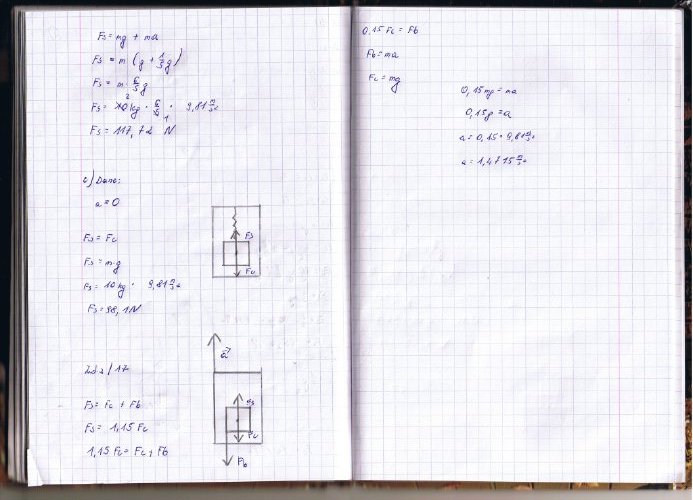 Fs = mg + ma
Fs = m (g + 1/5 g)
Fs = m · 6/5 g
Fs = 10 kg · 6/5 · 9,81 m/s²
2
1
Fs = 117,72 N
c) Dane:
a = 0
Fs = Fc
Fs = m·g
Fs = 10 kg · 9,81 m/s²
Fs = 98,1 N
Fs
Fc
a
Zad. 17
Fs = Fc + Fb
Fs = 1,15 Fc
1,15 Fc = Fc + Fb
Fs
Fc
Fb
0,15 Fc = Fb
Fb = ma
Fc = mg
0,15 mg = ma
0,15 g = a
a = 0,15 · 9,81 m/s²
a = 1,4715 m/s²